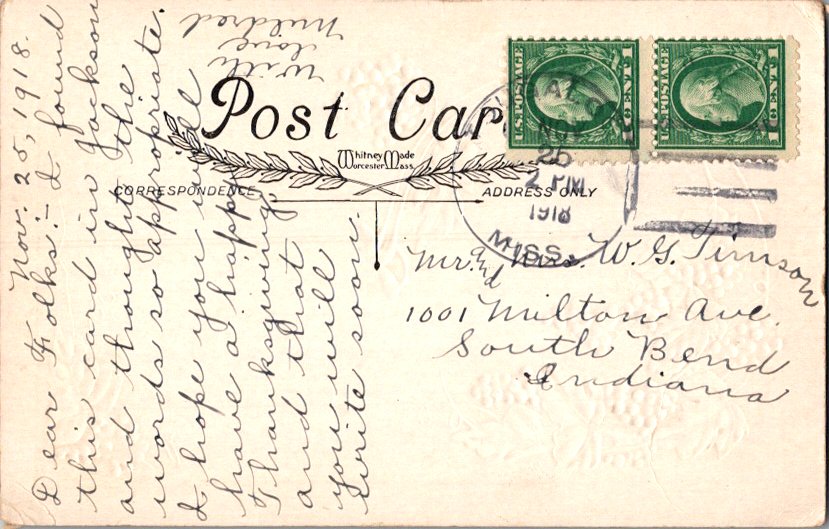 Nov. 25, 1918.
Dear Folks:- I found
this card in Jackson
and thought the
words so appropriate.
I hope you will
have a happy
Thanksgiving
and that
you will
write soon.
With
love
Mildred
Post Car
Whitney Made
Worcester Mass.
CORRESPONDENCE
ADDRESS ONLY
U.S. POSTAGE
1 CENT 1
U.S. POSTAGE
1 CENT 1
NOV
25
2 PM
1918
MISS.
Mr. and Mrs. W. G. Timson
1001 Milton Ave.
South Bend
Indiana